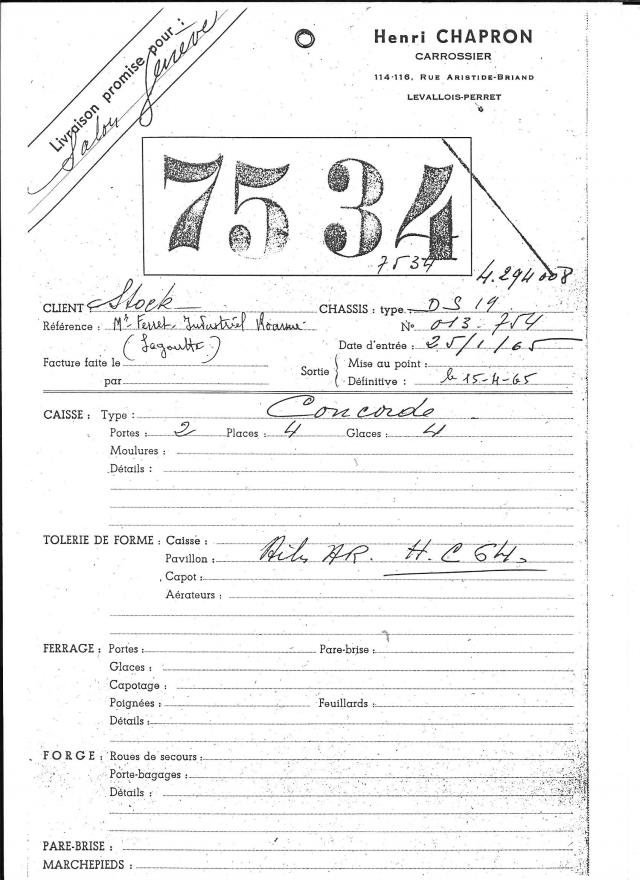 Livraison promise pour :
Salon Genève
Henri CHAPRON
CARROSSIER
114-116, RUE ARISTIDE-BRIAND
LEVALLOIS-PERRET
7534
7534
4.294 008
CLIENT Stock
CHASSIS : type DS 19
Référence : Mr Ferret Industriel Roanne
N° 013-754
(Lagoutte)
Date d'entrée : 25/1/65
Facture faite le
Sortie
Mise au point :
par
Définitive : le 15-4-65
CAISSE : Type : Concorde
Portes : 2 Places : 4 Glaces : 4
Moulures :
Détails :
TOLERIE DE FORME : Caisse :
Pavillon : Ailes AR. H.C 64.
Capot :
Aérateurs :
FERRAGE : Portes : Pare-brise :
Glaces :
Capotage :
Poignées : Feuillards :
Détails :
FORGE : Roues de secours :
Porte-bagages :
Détails :
PARE-BRISE :
MARCHEPIEDS :